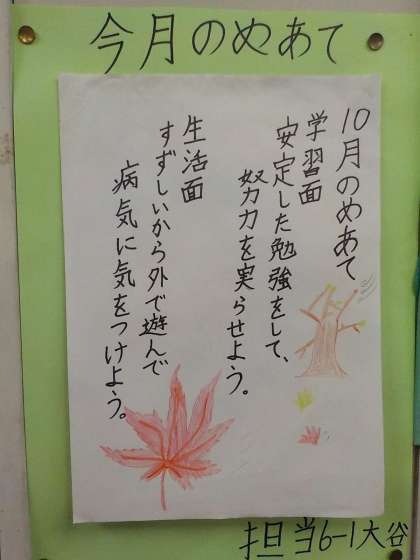 今月のめあて
10月のめあて
学習面
安定した勉強をして、
努力を実らせよう。
生活面
すずしいから外で遊んで
病気に気をつけよう。
担当6-1大谷